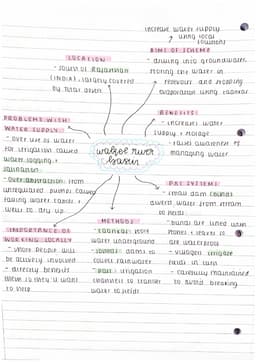 increase water supply
using local
LOCATION
- South of Rajasthan
(INDIA), largely covered
by Thar desert
AIMS OF SCHEME
- driving into groundwater
storing the water in
reservoir and
evaporation using
BENEFITS
- increases water
supply + storage
- raises awareness of
managing water
PROBLEMS WITH
WATER SUPPLY
- over use of water
for irrigation caused
water logging +
salinisation
- over abstraction from
unregulated pumps caused
falling water table +
wells to dry up
wakel river
basin
PAL SYSTEMS
- small dam
divert water from stream
to fields
- bunds are lined with
stones + leaves so
are waterproof
- villages irrigate
fields in turn
- carefully maintained
to avoid breaking
METHODS
- taankas store
water underground
- johed dams to
collect rainwater
- pats irrigation
channels to transfer
water to fields
IMPORTANCE OF
WORKING LOCALLY
- more people will
be actively involved
- directly benefits
them so they'll want
to help